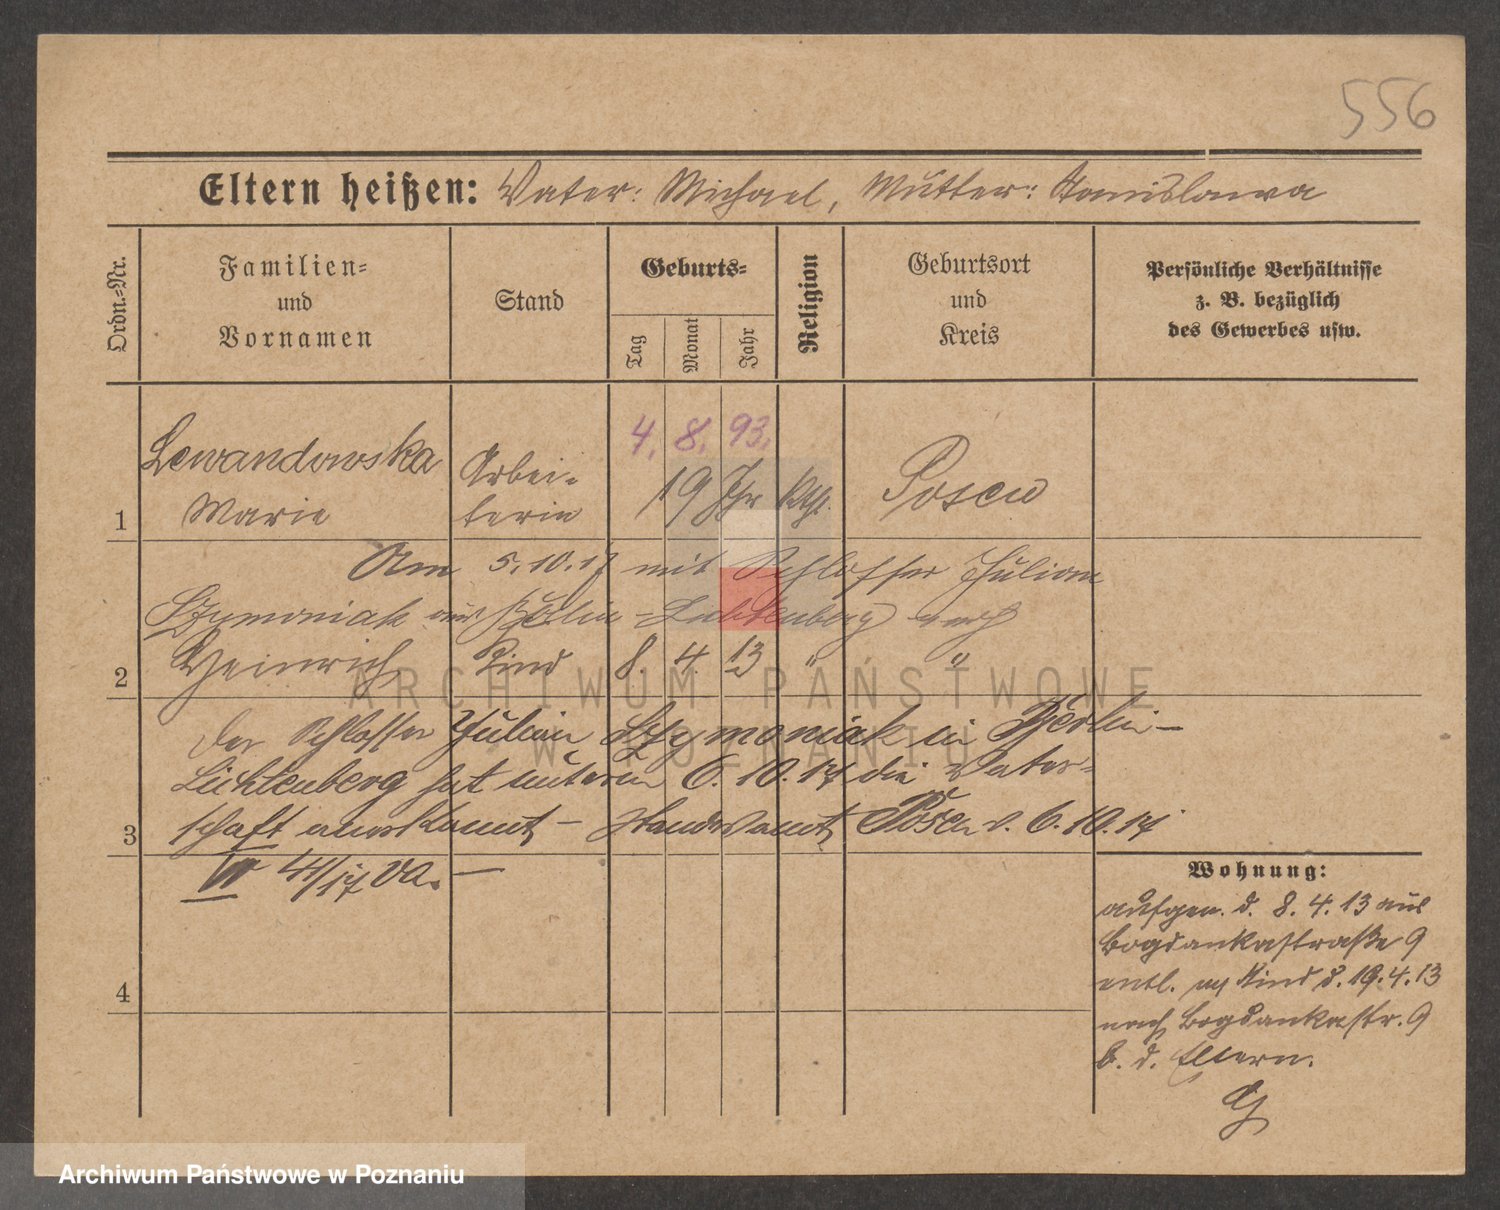 556
Eltern heißen: Vater: Michael, Mutter: Stanislawa
Ordn.=Nr.
Familien=
und
Vornamen
Stand
Geburts=
Tag
Monat
Jahr
Religion
Geburtsort
und
Kreis
Persönliche Verhältnisse
z. B. bezüglich
des Gewerbes usw.
4. 8. 93.
Lewandowska Arbei=
1 Marie terin 19 Jhr kth. Posen
Am 5.10.17 mit Schlosser Julian
Szymoniak aus Berlin=Lichtenberg verh
2 Heinrich Kind 8. 4. 13 " "
Der Schlosser Julian Szymoniak in Berlin-
Lichtenberg hat unterm 6.10.17 die Vater=
3 schaft anerkannt - Standesamt Posen v. 6.10.17
VI 44/17 Va. -
4
Wohnung:
aufgen. d. 8. 4. 13 aus
Bogdankastraße 9
entl. Kind d. 19.4.13
nach Bogdankastr. 9
b. d. Eltern.
G
ARCHIWUM PAŃSTWOWE
W POZNANIU
Archiwum Państwowe w Poznaniu